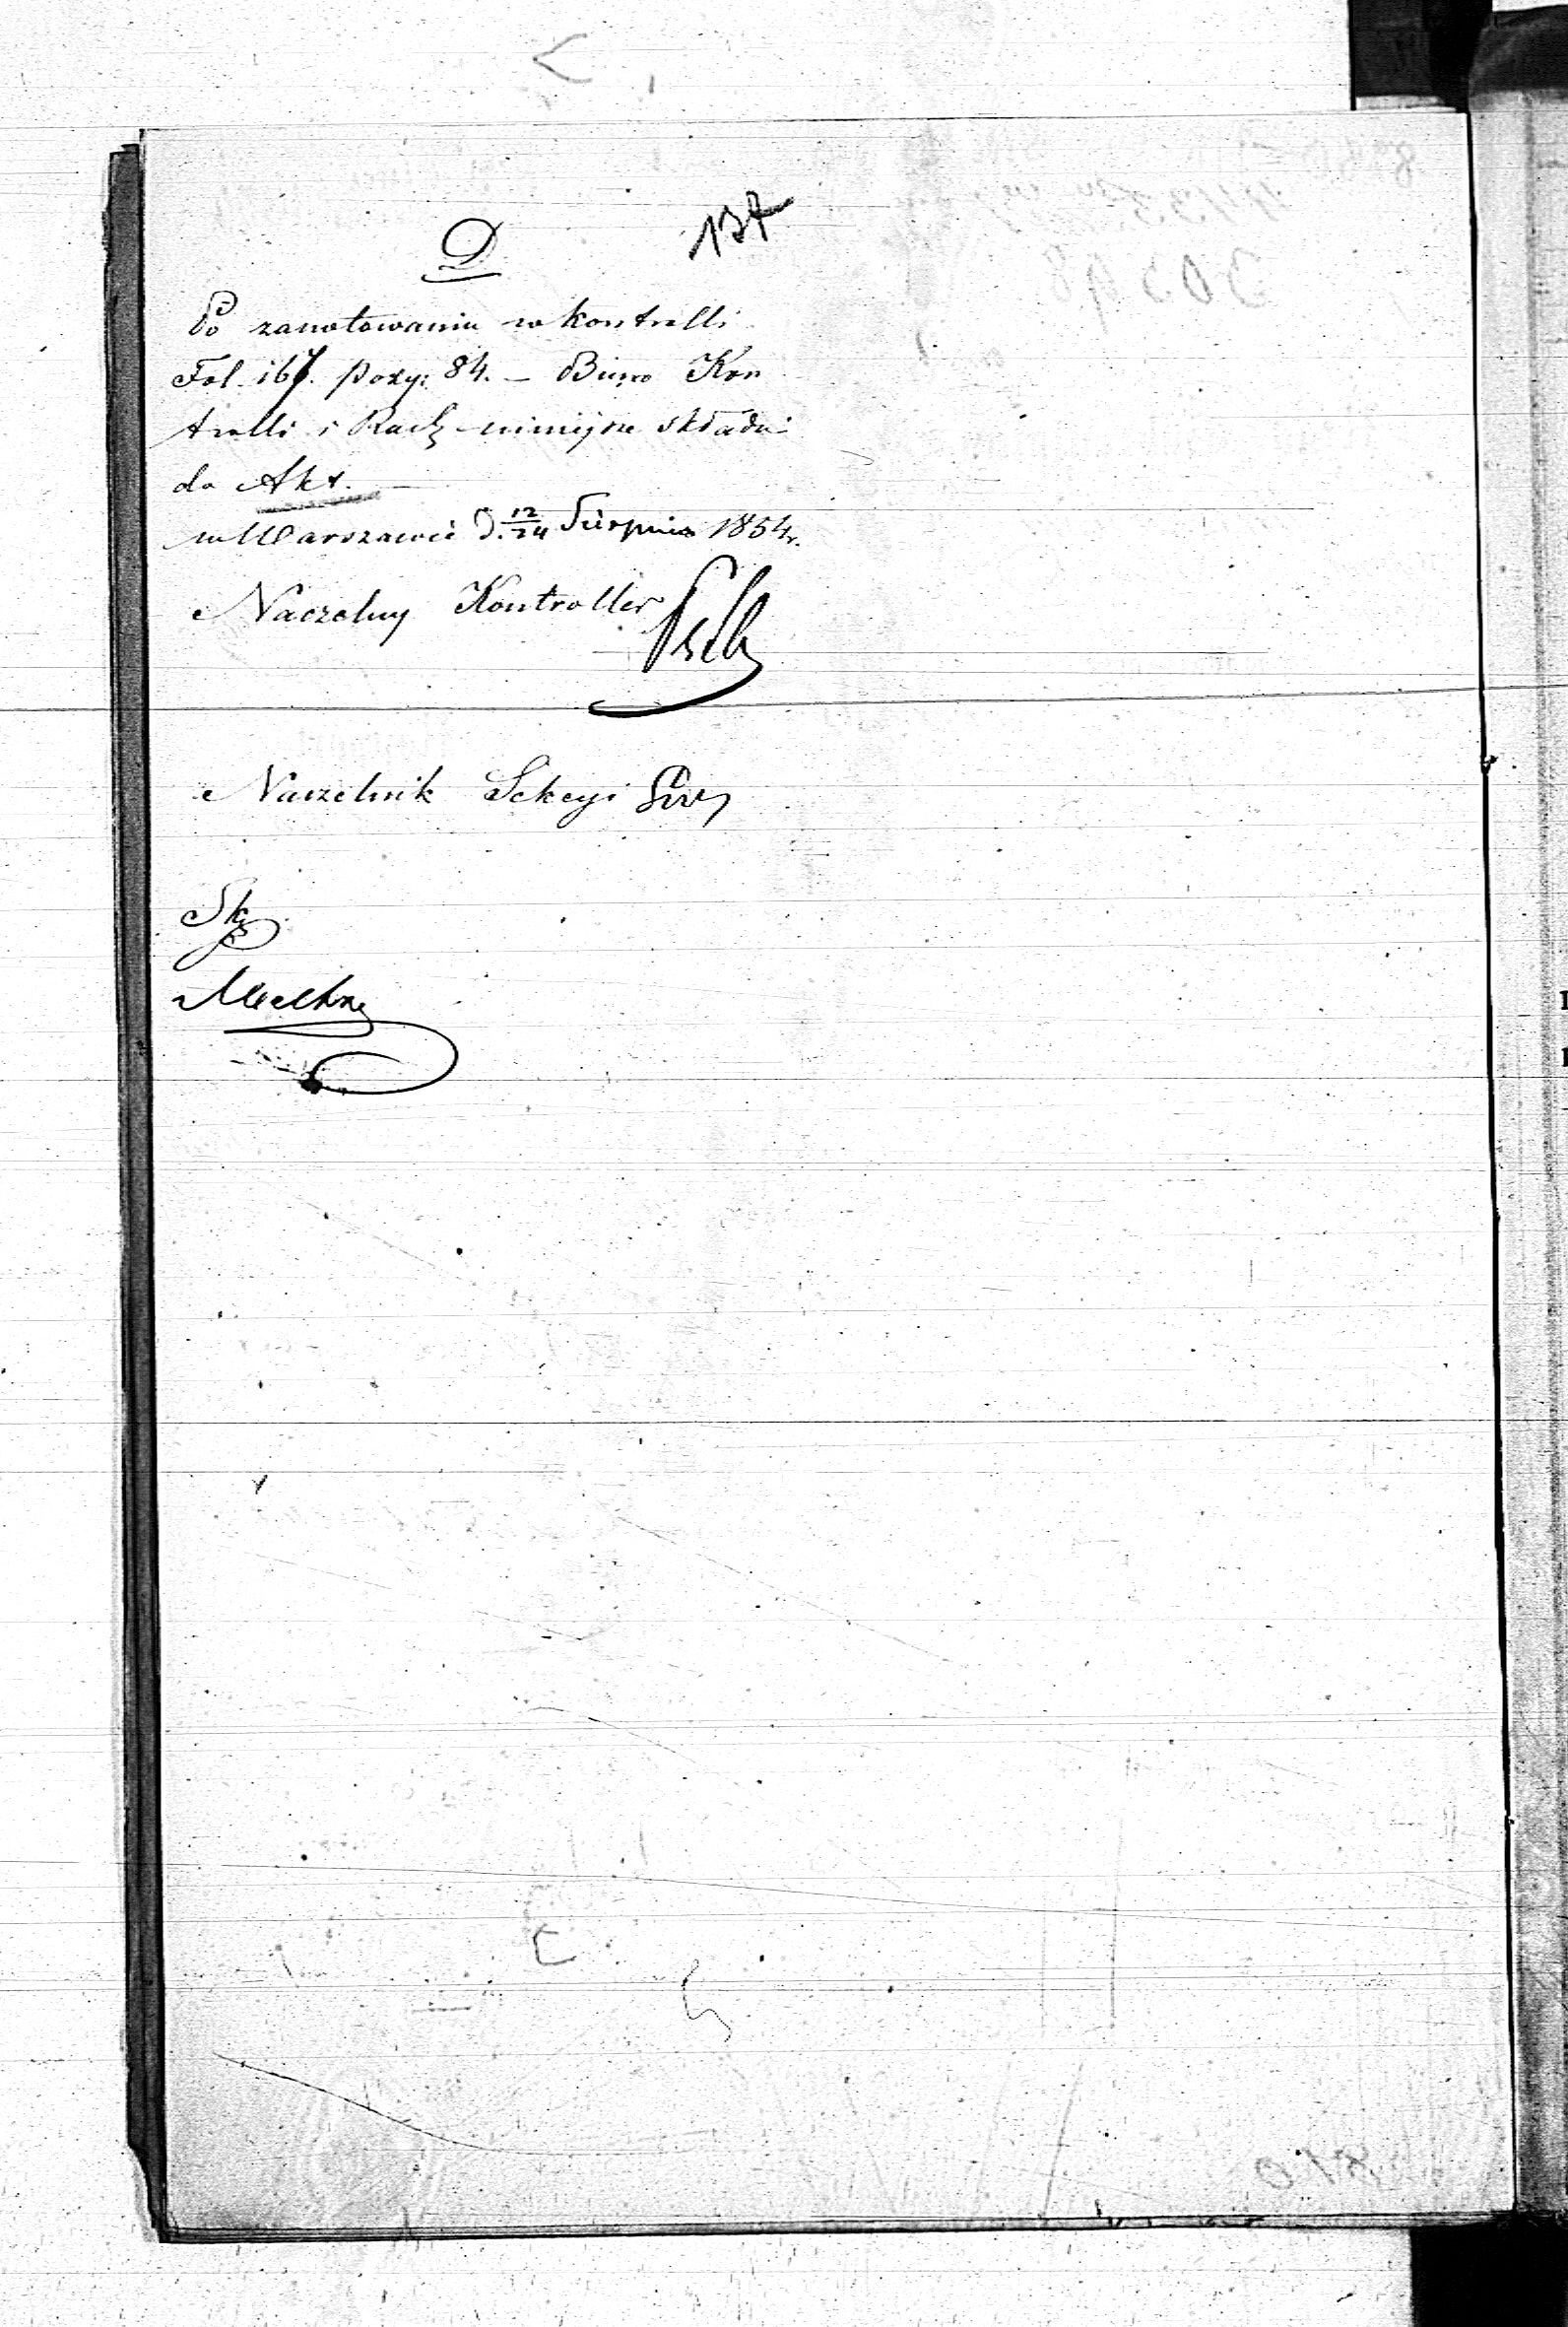 D
137
Po zanotowaniu w kontrolli
Fol. 167. pozy: 84. – Biuro Kon
trolli i Rach niniejsze składa
do Akt. –
w Warszawie d. 12/24 Sierpnia 1854 r.
Naczelny Kontroller
Naczelnik Sekcyi